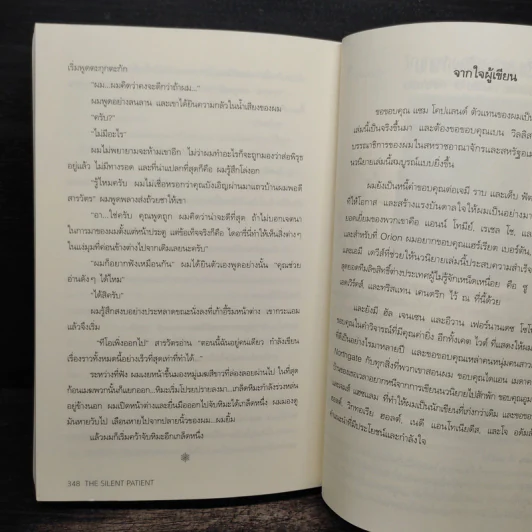 เริ่มพูดตะกุกตะกัก
"ผม...ผมคิดว่าคงจะดีกว่าถ้าผม..."
ผมพูดอย่างลนลาน และเขาได้ยินความกลัวในน้ำเสียงของผม
"ครับ?"
"ไม่มีอะไร"
ผมไม่พยายามจะห้ามเขาอีก ไม่ว่าผมทำอะไรก็จะถูกมองว่าส่อพิรุธ
อยู่แล้ว ไม่มีทางรอด และที่น่าแปลกที่สุดก็คือ ผมรู้สึกโล่งอก
"รู้ไหมครับ ผมไม่เชื่อหรอกว่าคุณบังเอิญผ่านมาแถวบ้านผมพอดี
สารวัตร" ผมพูดพลางส่งถ้วยชาให้เขา
"อา...ใช่ครับ คุณพูดถูก ผมคิดว่าน่าจะดีที่สุด ถ้าไม่บอกเจตนา
ในการมาของผมตั้งแต่หน้าประตู แต่ข้อเท็จจริงก็คือ ไดอารี่นี่ทำให้เห็นสิ่งต่างๆ
ในแง่มุมที่ค่อนข้างต่างไปจากเดิมเลยนะครับ"
"ผมก็อยากฟังเหมือนกัน" ผมได้ยินตัวเองพูดอย่างนั้น "คุณช่วย
อ่านดังๆ ได้ไหม"
"ได้สิครับ"
ผมรู้สึกสงบอย่างประหลาดขณะนั่งลงที่เก้าอี้ริมหน้าต่าง เขากระแอม
แล้วจึงเริ่ม
"'ทีโอเพิ่งออกไป'" สารวัตรอ่าน "'ตอนนี้ฉันอยู่คนเดียว กำลังเขียน
เรื่องราวทั้งหมดนี้อย่างเร็วที่สุดเท่าที่ทำได้...'"
ระหว่างที่ฟัง ผมเงยหน้าขึ้นมองหมู่เมฆสีขาวที่ล่องลอยผ่านไป ในที่สุด
ก้อนเมฆพวกนั้นก็แยกออก...หิมะเริ่มโปรยปรายลงมา...เกล็ดหิมะกำลังร่วงหล่น
อยู่ข้างนอก ผมเปิดหน้าต่างและยื่นมือออกไปจับหิมะได้เกล็ดหนึ่ง ผมมองดู
มันหายวับไป เลือนหายไปจากปลายนิ้วของผม ผมยิ้ม
แล้วผมก็เริ่มคว้าจับหิมะอีกเกล็ดหนึ่ง
348 THE SILENT PATIENT
จากใจผู้เขียน
ขอขอบคุณ แซม โคปแลนด์ ตัวแทนของผมเป็น
เล่มนี้เป็นจริงขึ้นมา และต้องขอขอบคุณเบน วิลลิส
บรรณาธิการของผมในสหราชอาณาจักรและสหรัฐอเม
นวนิยายเล่มนี้สมบูรณ์แบบยิ่งขึ้น
ผมยังเป็นหนี้คำขอบคุณต่อเจมี ราบ และเด็บ ฟัต
ที่ให้โอกาส และสร้างแรงบันดาลใจให้ผมเป็นอย่างมา
ยอดเยี่ยมของพวกเขาคือ แอนน์ โทมีย์, เรเชล โช, แล
และสำหรับที่ Orion ผมอยากขอบคุณแฮร์เรียต เบอร์ตัน,
และเอมี เดวีส์ที่ช่วยให้นวนิยายเล่มนี้ประสบความสำเร็จ
สุดยอดทีมลิขสิทธิ์ต่างประเทศผู้ไม่รู้จักเหนื่อย คือ ซู
และทริสแทน เคนดริก ไว้ ณ ที่นี้ด้วย
และยังมี ฮัล เจนเซน และอีวาน เฟอร์นานเดซ โซโ
ขอบคุณในคำวิจารณ์ที่มีคุณค่ายิ่ง อีกทั้งเคต ไวต์ ที่แสดงให้ผม
ที่ดีเป็นอย่างไรมาหลายปี และขอขอบคุณเหล่าคนหนุ่มคนสาว
Northgate กับทุกสิ่งที่พวกเขาสอนผม ขอบคุณไดแอน เมดาค
ที่ทำให้ผมเป็นนักเขียนที่เก่งกว่าเดิม และขอขอ
ฮอลต์, วิกทอเรีย ฮอลต์, เนดี แอนโทเนียดีส, และโจ อดัมส์
คำแนะนำที่มีประโยชน์และกำลังใจ